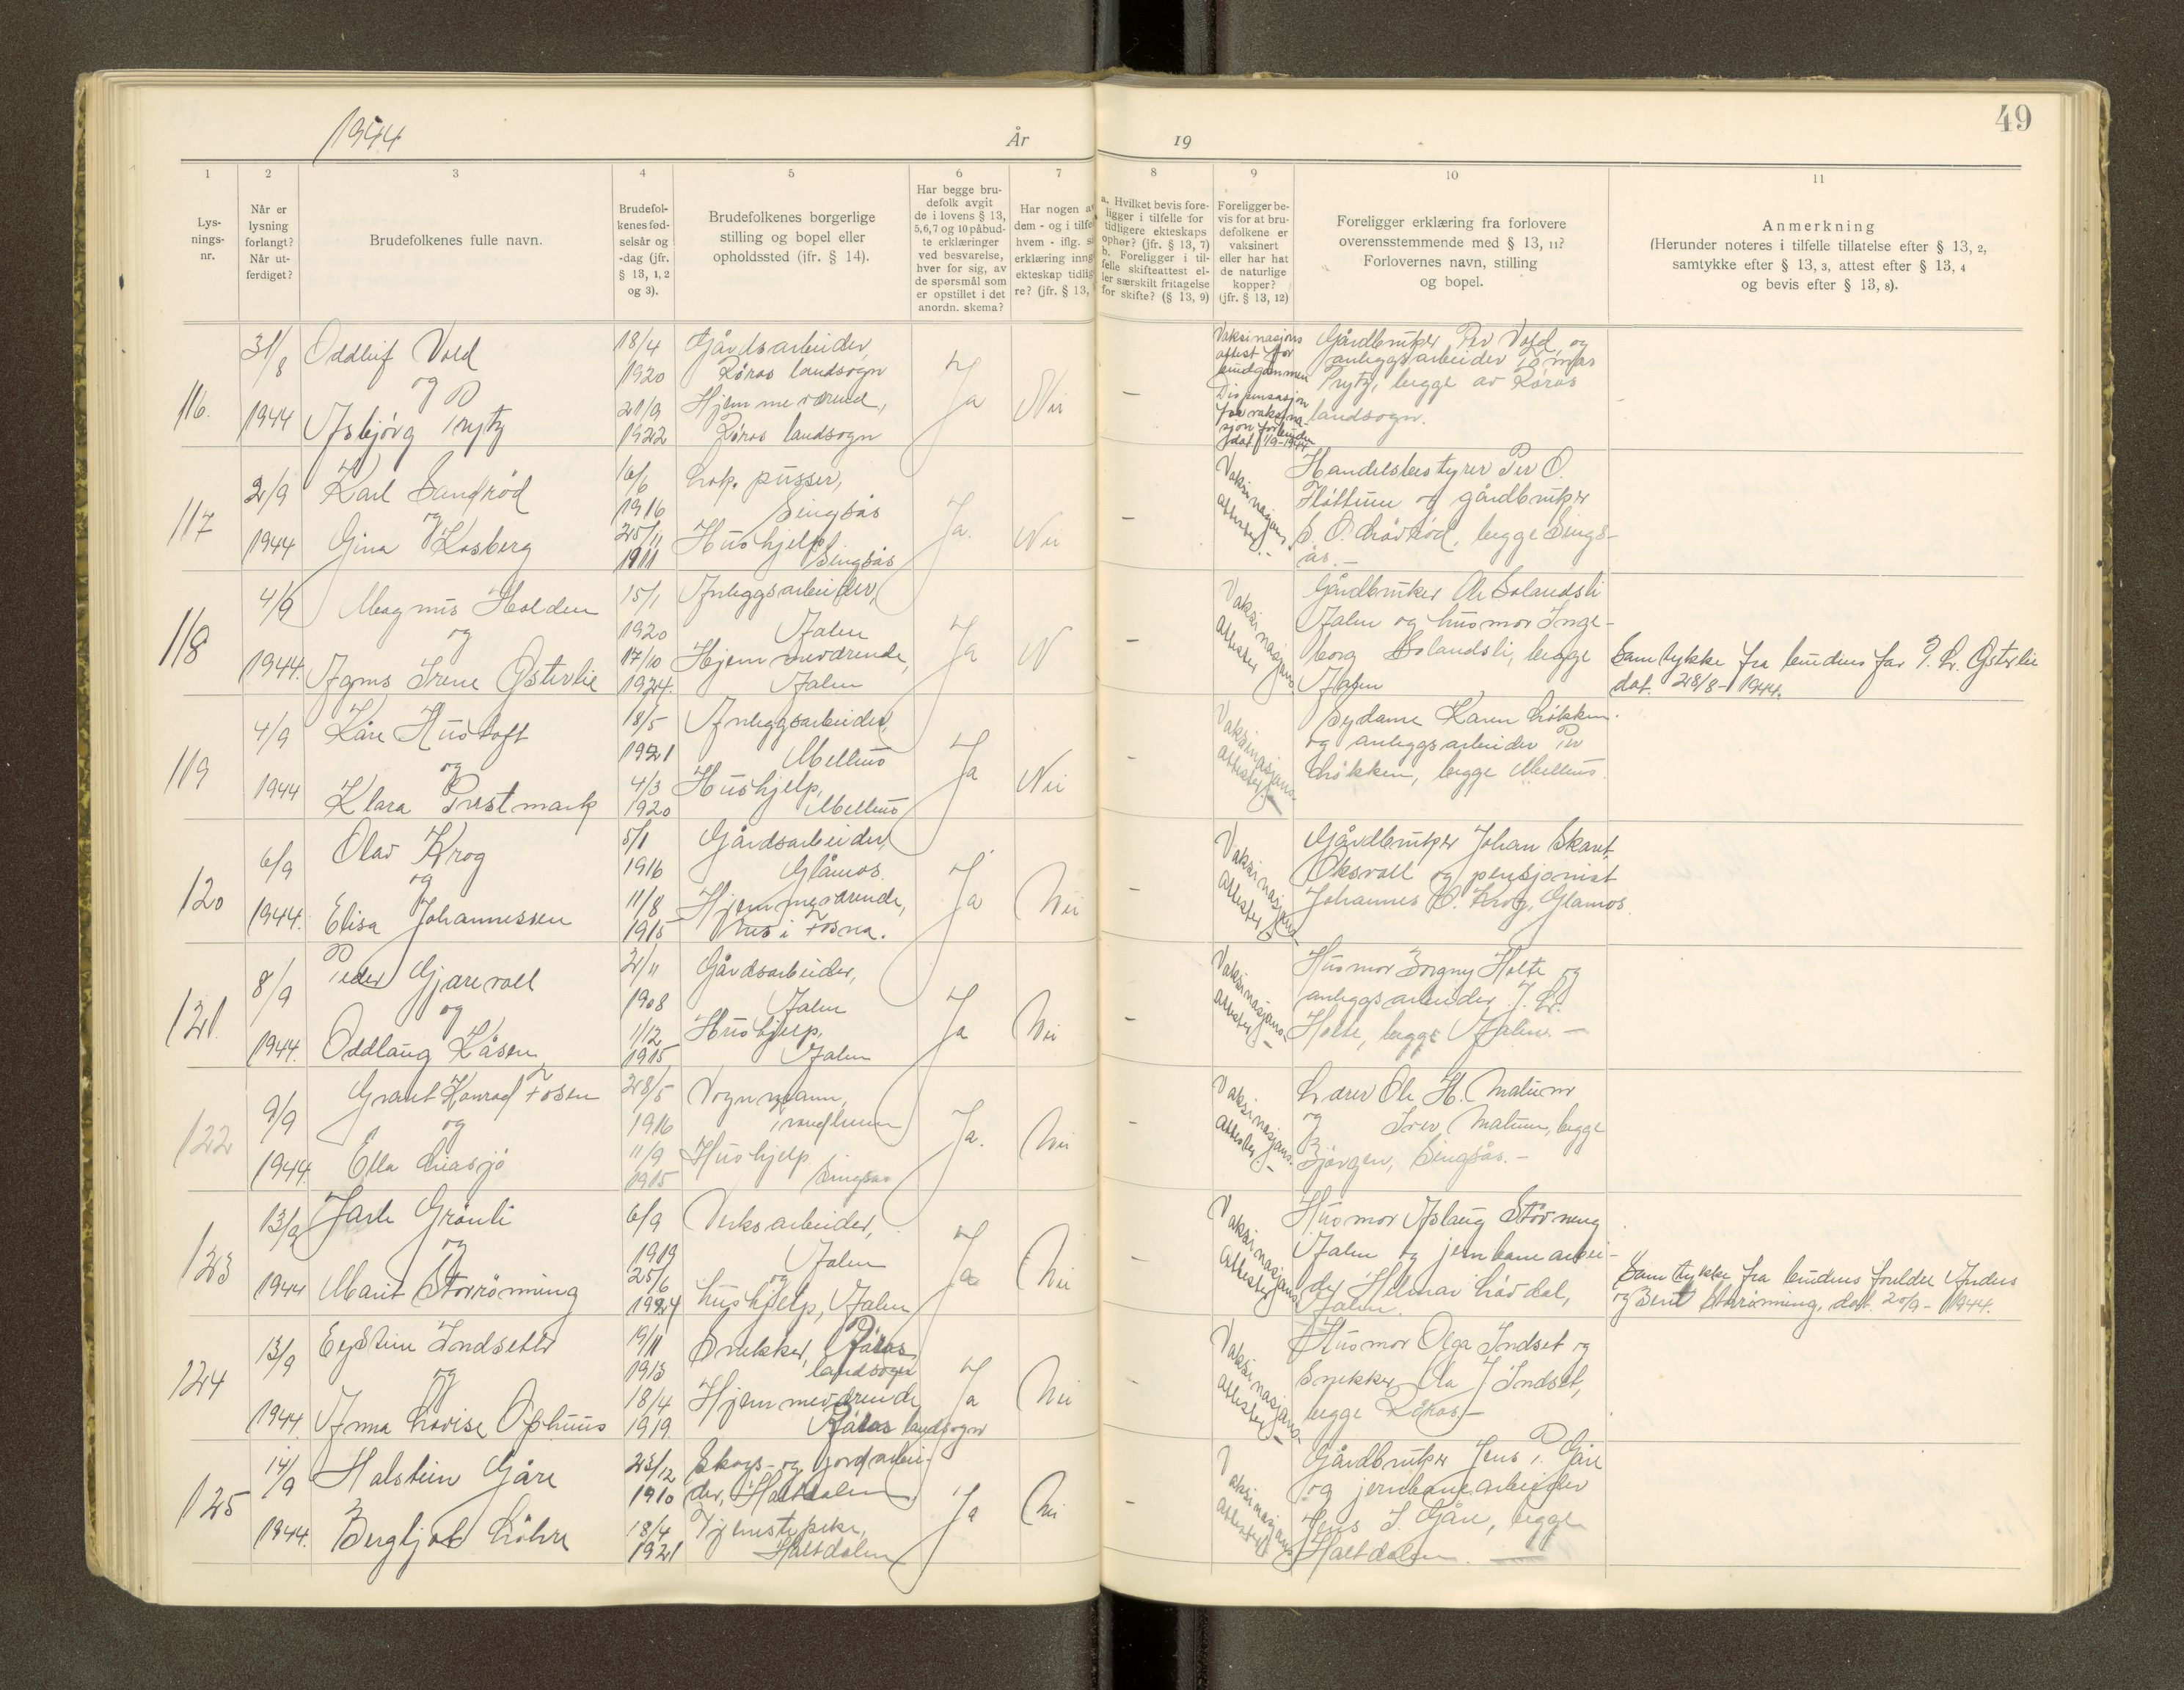 49
1944
År
19
1
2
3
4
5
6
7
8
9
10
11
Lys-
nings-
nr.
Når er
lysning
forlangt?
Når ut-
ferdiget?
Brudefolkenes fulle navn.
Brudefol-
kenes fød-
selsår og
-dag (jfr.
§ 13, 1, 2
og 3).
Brudefolkenes borgerlige
stilling og bopel eller
opholdssted (ifr. § 14).
Har begge bru-
defolk avgit
de i lovens § 13,
5,6,7 og 10 påbud-
te erklæringer
ved besvarelse,
hver for sig, av
de spørsmål som
er opstillet i det
anordn. skema?
Har nogen a
dem - og i tilfe
hvem - iflg. si
erklæring inng
ekteskap tidlig
re? (jfr. § 13,
a. Hvilket bevis fore-
ligger i tilfelle for
tidligere ekteskaps
ophør? (jfr. § 13, 7)
b. Foreligger i til-
felle skifteattest el-
ler særskilt fritagelse
for skifte? (§ 13, 9)
Foreligger be-
vis for at bru-
defolkene er
vaksinert
eller har hat
de naturlige
kopper?
(jfr. § 13, 12)
Foreligger erklæring fra forlovere
overensstemmende med § 13, 11?
Forlovernes navn, stilling
og bopel.
Anmerkning
(Herunder noteres i tilfelle tillatelse efter § 13, 2,
samtykke efter § 13, 3, attest efter § 13, 4
og bevis efter § 13, 8).
116.
31/8
1944
Oddleif Vold
og
Asbjørg Prytz
18/4
1920
21/9
1922
Gårdsarbeider,
Røros landsogn
Hjemmeværend.,
Røros landsogn
Ja
Nei
-
Vaksinasjons
attest for
brudgommen
Dispensasjon
fra vaksina-
sjon for bruden
dat. 1/9-1944.
Gårdbruker Per Vold og
anleggsarbeider Tomas
Prytz, begge av Røros
landsogn.
117
2/9
1944
Karl Sandrød
og
Gina Kosberg
6/6
1916
25/11
1911
Lok. pusser,
Singsås
Hushjelp,
Singsås
Ja.
Nei
-
Vaksinasjons
attester.-
Handelsbestyrer Per O.
Fløttum og gårdbruker
S. O. Løvrød, begge Sings-
ås.-
118
4/9
1944.
Magnus Holden
og
Agnes Irene Østerlie
15/1
1920
17/10
1924.
Anleggsarbeider,
Aalen
Hjemmeværende,
Aalen
Ja
N
-
Vaksinasjons
attester
Gårdbruker Ole Solandsli
Aalen og husmor Inge-
borg Solandsli, begge
Aalen
Samtykke fra brudens far P. L. Østerlie
dat. 28/8-1944.
119
4/9
1944
Kåre Hustoft
og
Klara Prestmark
18/5
1921
4/3
1920
Anleggsarbeider,
Melhus
Hushjelp,
Melhus
Ja
Nei
-
Vaksinasjons
attester.-
Sydame Karen Løkken
og anleggsarbeider Per
Løkken, begge Melhus.
120
6/9
1944.
Olav Krog
og
Elisa Johannessen
5/1
1916
11/8
1915
Gårdsarbeider,
Glåmos.
Hjemmeværende,
Nes i Fosna.
Ja
Nei
-
Vaksinasjons
attester.-
Gårdbruker Johan Skant,
Oksvoll og pensjonist
Johannes O. Krog, Glåmos.
121.
8/9
1944.
Peder Gjærevoll
og
Oddlaug Kåsen
2/11
1908
1/12
1915
Gårdsarbeider,
Aalen
Hushjelp,
Aalen
Ja
Nei
-
Vaksinasjons-
attester -
Husmor Borgny Holte og
anleggsarbeider J. Kr.
Holte, begge Aalen. -
122
9/9
1944.
Graut Konrad Fosen
og
Ella Liasjø
28/5
1916
11/9
1915
Vognmann,
Trondheim
Hushjelp
Singsås
Ja.
Nei
-
Vaksinasjons-
attester -
Lærer Ole H. Natum
og
Frev Natum, begge
Bjørgen, Singsås. -
123
13/9
1944
Jarle Grønli
og
Marit Storrønning
6/9
1919
25/6
1924
Verksarbeider,
Aalen
og
hushjelp, Aalen
Ja
Nei
-
Vaksinasjons
attester
Husmor Aslaug Størneng
Aalen og jernbanearbei-
der Helmar Løvdal,
Aalen.
Samtykke fra brudens foreldre Anders
og Berit Storrønning, dat. 20/9-1944.
124
13/9
1944.
Eystein Indsetér
og
Anna Lovise Ophuus
19/11
1913
18/4
1919.
Snekker, Røros
landsogn
Hjemmeværende
Røros landsogn
Ja
Nei
-
Vaksinasjons-
attester -
Husmor Olga Indset og
Snekker Ola J Indset,
begge Røros. -
125
14/9
1944.
Halstein Gåre
Bergljot Løhre
23/12
1910
18/4
1921
Skogs- og jordarbei-
der, Haltdalen.
Tjenestepike,
Haltdalen
Ja
Nei
-
Vaksinasjons
attester.
Gårdbruker Jens P. Gåre
og jernbanearbeider
Jens J. Gåre, begge
Haltdalen.